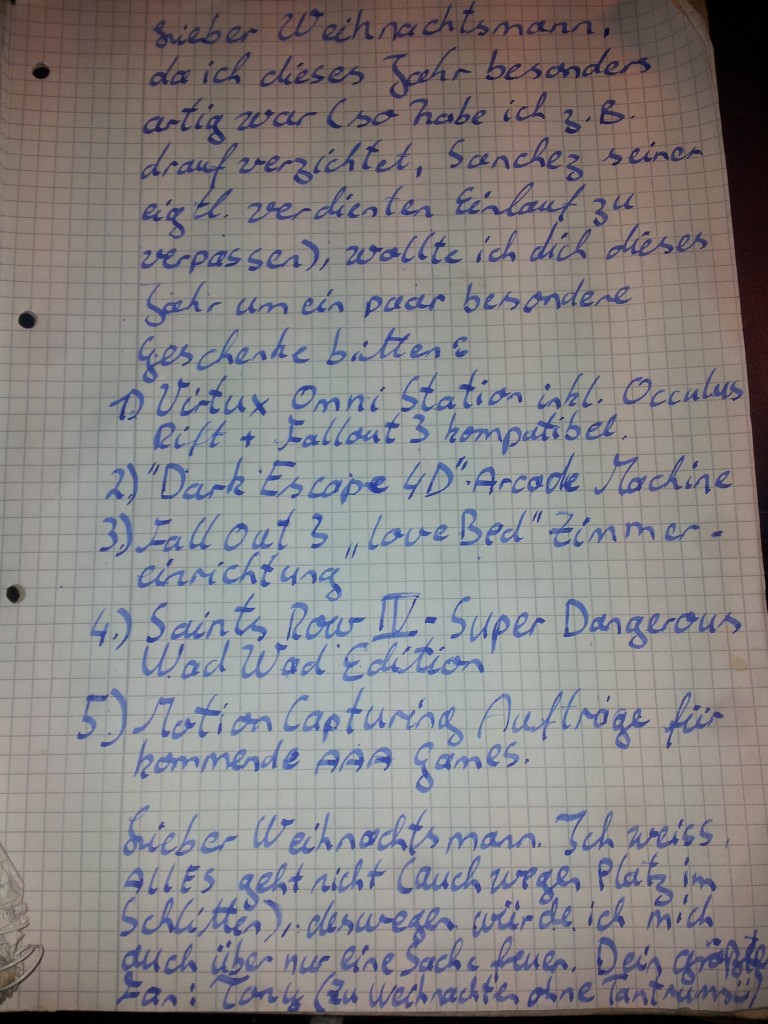 Lieber Weihnachtsmann,
da ich dieses Jahr besonders
artig war (so habe ich z.B.
drauf verzichtet, Sanchez seinen
eigtl. verdienten Einlauf zu
verpassen), wollte ich dich dieses
Jahr um ein paar besondere
Geschenke bitten:
1) Virtux Omni Station inkl. Occulus
Rift + Fallout 3 kompatibel.
2.) "Dark Escape 4D"-Arcade Machine
3.) Fall Out 3 „Love Bed" Zimmer-
einrichtung
4.) Saints Row IV - Super Dangerous
Wad Wad Edition
5.) Motion Capturing Aufträge für
kommende AAA Games.
Lieber Weihnachtsmann. Ich weiss,
ALLES geht nicht (auch wegen Platz im
Schlitten), deswegen würde ich mich
auch über nur eine Sache freuen. Dein größter
Fan: Tony (Zu Weihnachten ohne Tantrums ü)